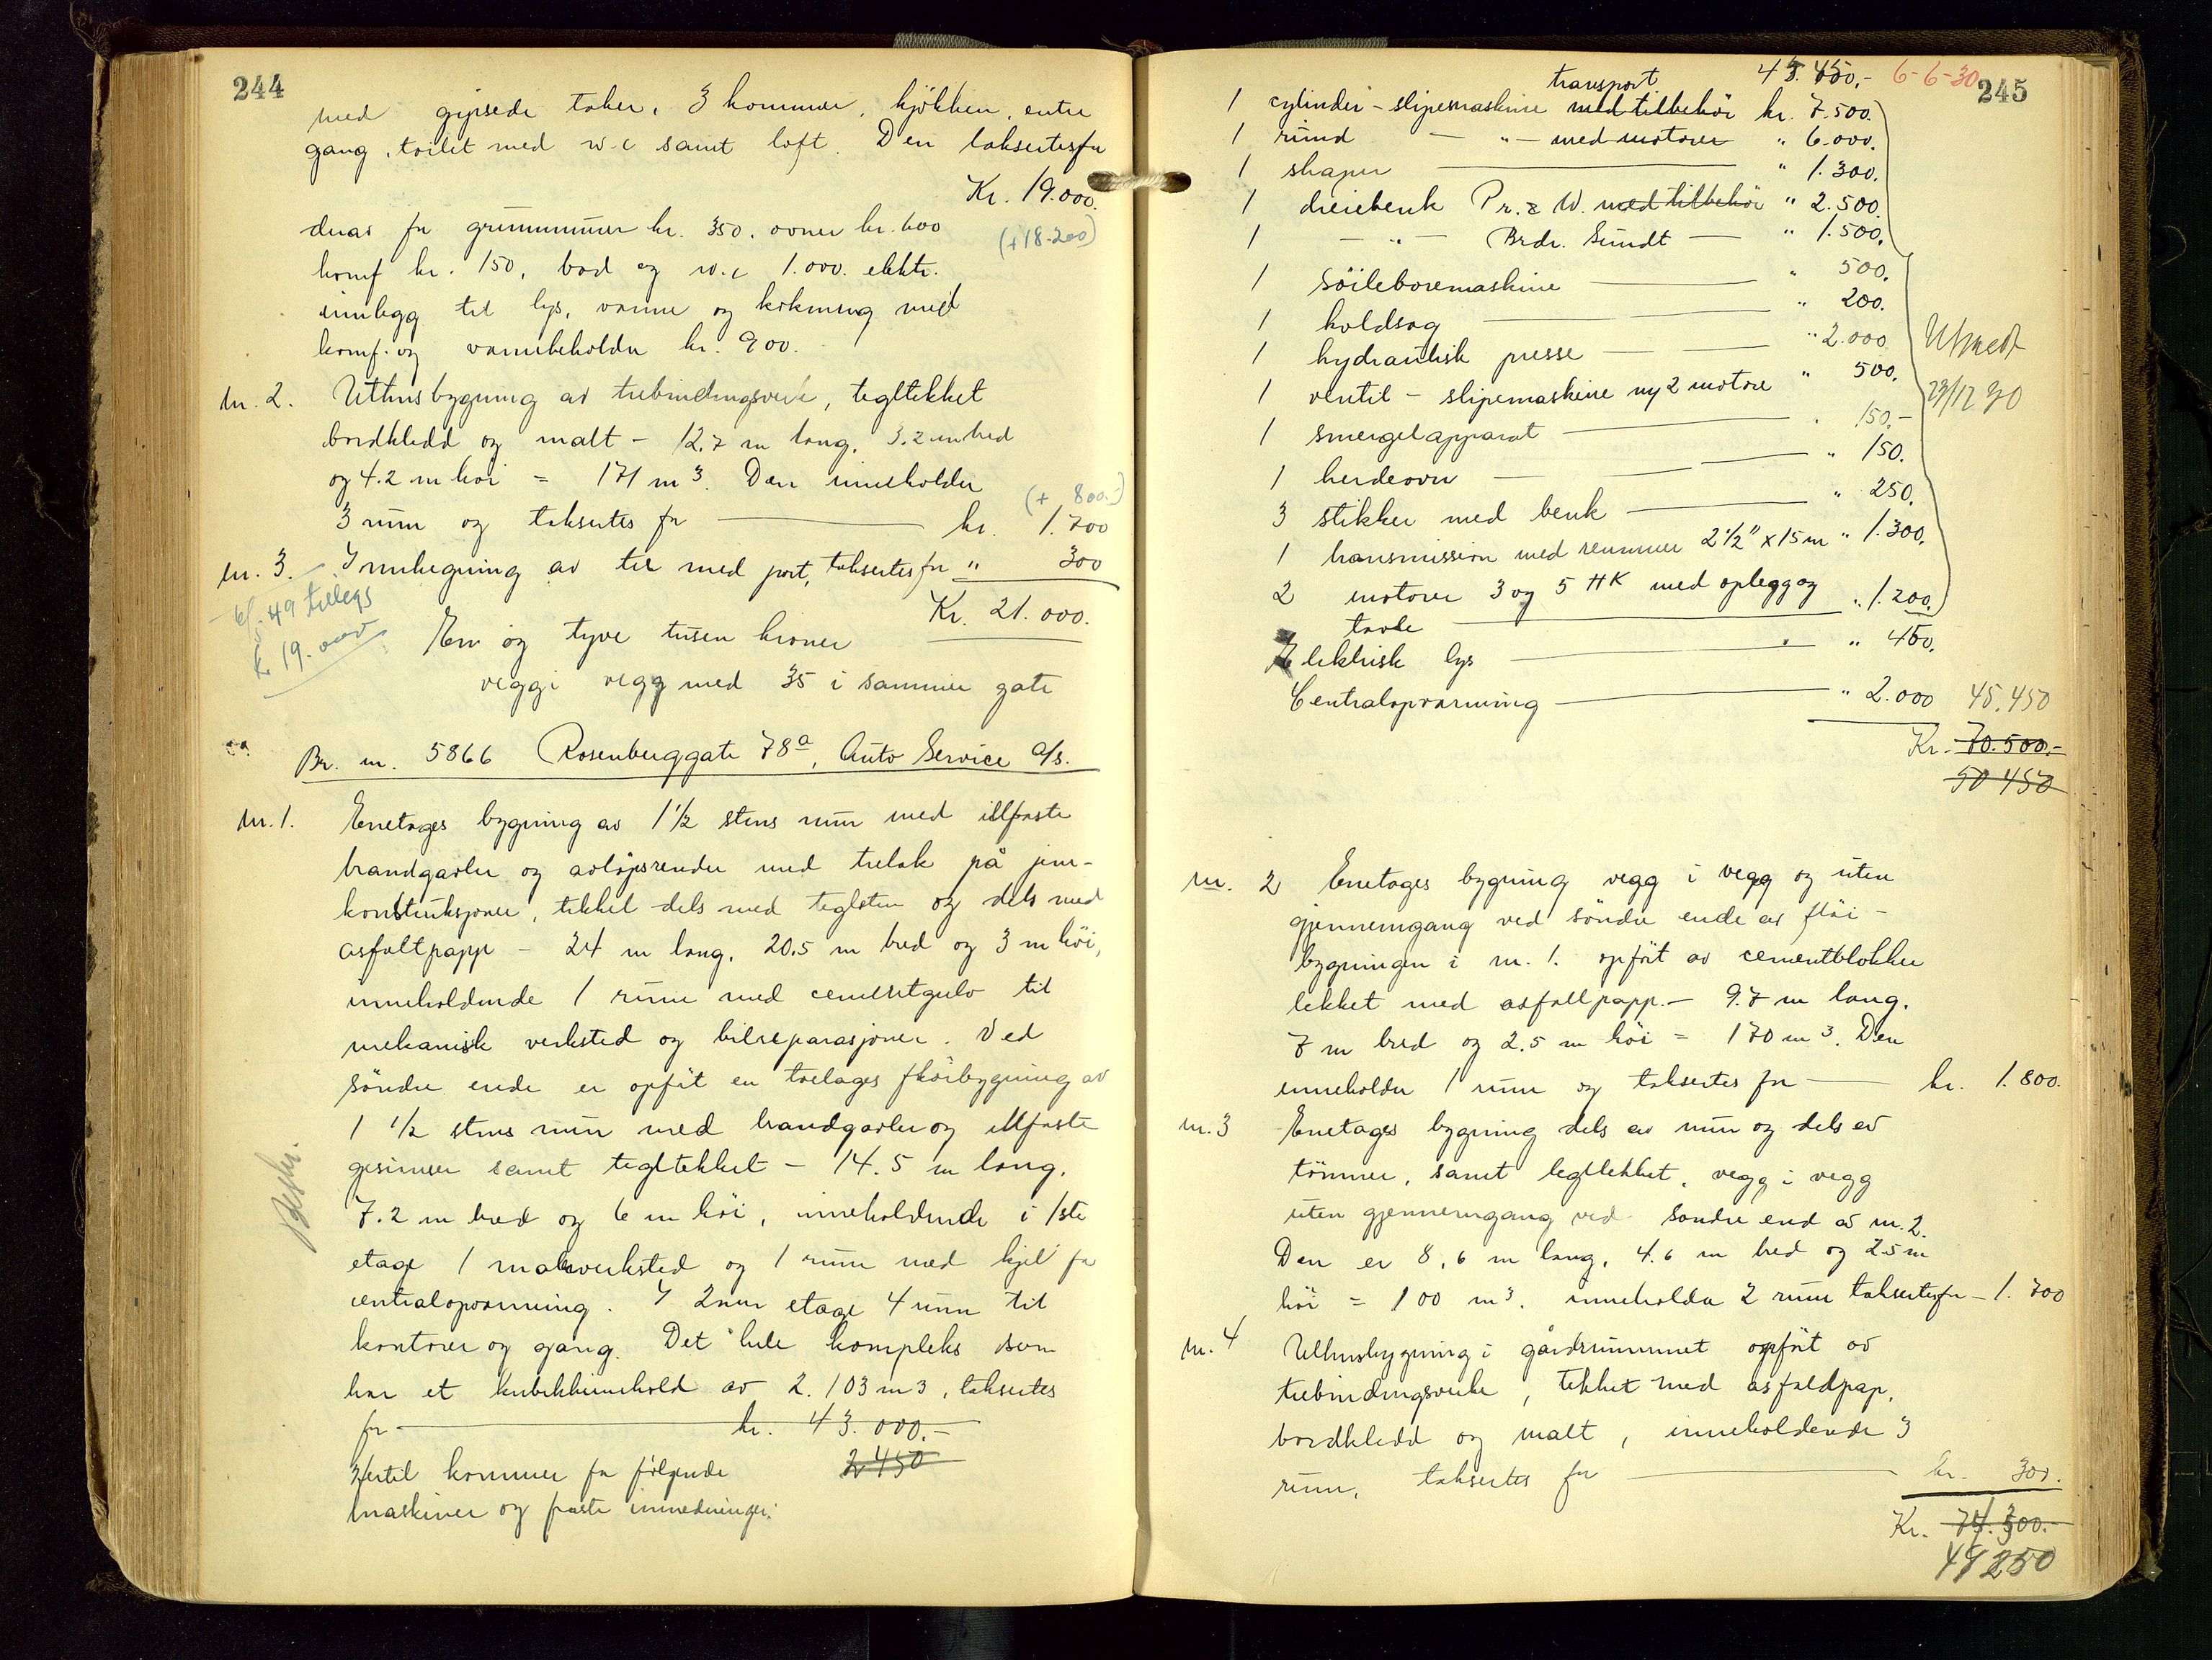 244
med gipsede taker, 3 kammer, kjøkken, entre
gang, toilet med w.c samt loft. Den takseres for
Kr. 19.000.
derav for grunnmurer kr. 350. ovner kr. 600 (+18.200)
komf kr. 150, bad og w.c 1.000. elektr.
innlegg til lys, varme og kokning med
komf. og varmebeholder kr. 900.
nr. 2. Uthusbygning av trebindingsverk, tegltekket
bordkledd og malt - 12,7 m lang, 3.2 m bred
og 4.2 m høi = 171 m³. Den inneholder
3 rum og takseres for kr. 1.700
(+ 800.-)
nr. 3. Innhegning av tre med port, takseres for " 300
Kr. 21.000.
6/5.49 tillegg
k 19.000
En og tyve tusen kroner
vegg i vegg med 35 i samme gate
Br. nr. 5866 Rosenberggate 78a, Auto Service a/s.
nr. 1. Enetages bygning av 1 1/2 stens mur med ildfaste
brandgavler og avløpsrender med tretak på jern-
konstruksjoner, tekket dels med teglsten og dels med
asfaltpapp - 24 m lang, 20.5 m bred og 3 m høi,
inneholdende 1 rum med cementgulv til
mekanisk verksted og bilreparasjoner. Ved
søndre ende er opført en toetages fløibygning av
1 1/2 stens mur med brandgavler og ildfaste
gesimser samt tegltekket - 14.5 m lang,
7.2 m bred og 6 m høi, inneholdende i 1ste
etage 1 malerverksted og 1 rum med kjel for
centralopvarming. I 2nen etage 4 rum til
kontorer og gang. Det hele kompleks som
har et kubikkinnhold av 2.103 m3, takseres
for kr. 43.000.-
Hertil kommer for følgende 2450
maskiner og faste innredninger:
245
transport 45.450,- 6-6-30
1 cylinder - slipemaskine med tilbehør kr. 7.500.
1 rund - " - med motorer " 6.000.
1 shaper " 1.300.
1 dreiebenk Pr. & W. med tilbehør " 2.500.
1 - " - Brdr. Sundt - " 1.500.
1 søileboremaskine " 500.
1 koldsag " 200.
1 hydraulisk presse " 2.000
1 ventil - slipemaskine ny 2 motore " 500.
1 smergelapparat " 150,-
1 herdeovn " 150.
3 stikker med benk " 250.
1 transmission med remmer 2 1/2" x 15 m " 1.300.
2 motorer 3 og 5 HK med oplegg og
tavle " 1.200.
Utmeldt
29/12 30
Elektrisk lys " 450.
Centralopvarming " 2.000 45.450
Kr. 70.500.-
50 450
nr. 2 Enetages bygning vegg i vegg og uten
gjennemgang ved søndre ende av fløi-
bygningen i nr. 1. opført av cementblokker
tekket med asfaltpapp. - 9.7 m lang,
7 m bred og 2.5 m høi = 170 m³. Den
inneholder 1 rum og takseres for kr. 1.800.
nr. 3 Enetages bygning dels av mur og dels av
tømmer, samt tegltekket, vegg i vegg
uten gjennemgang ved søndre end av nr. 2.
Den er 8,6 m lang, 4.6 m bred og 2.5 m
høi = 100 m³. inneholder 2 rum takseres for - 1.700
nr. 4 Uthusbygning i gårdsrummet opført av
trebindingsverk, tekket med asfaldpap,
bordkledd og malt, inneholdende 3
rum, takseres for kr. 300.
Kr. 74.300.-
49250